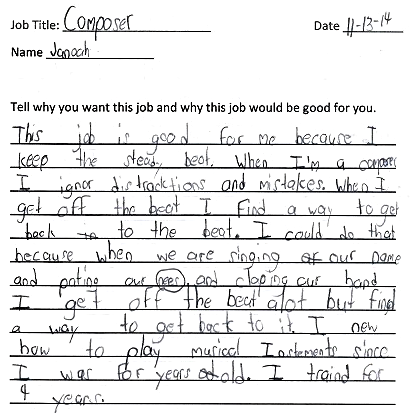 Job Title: Composer Date 11-13-14
Name Janoah
Tell why you want this job and why this job would be good for you.
This job is good for me because I
keep the steady beat. When I'm a composer
I ignor distracktions and mistakes. When I
get off the beat I find a way to get
back to to the beat. I could do that
because when we are singing our name
and pnting our nees and claping our hand
I get off the beat alot but find
a way to get back to it. I new
how to play musical Instements since
I was for years old. I traind for
4 years.